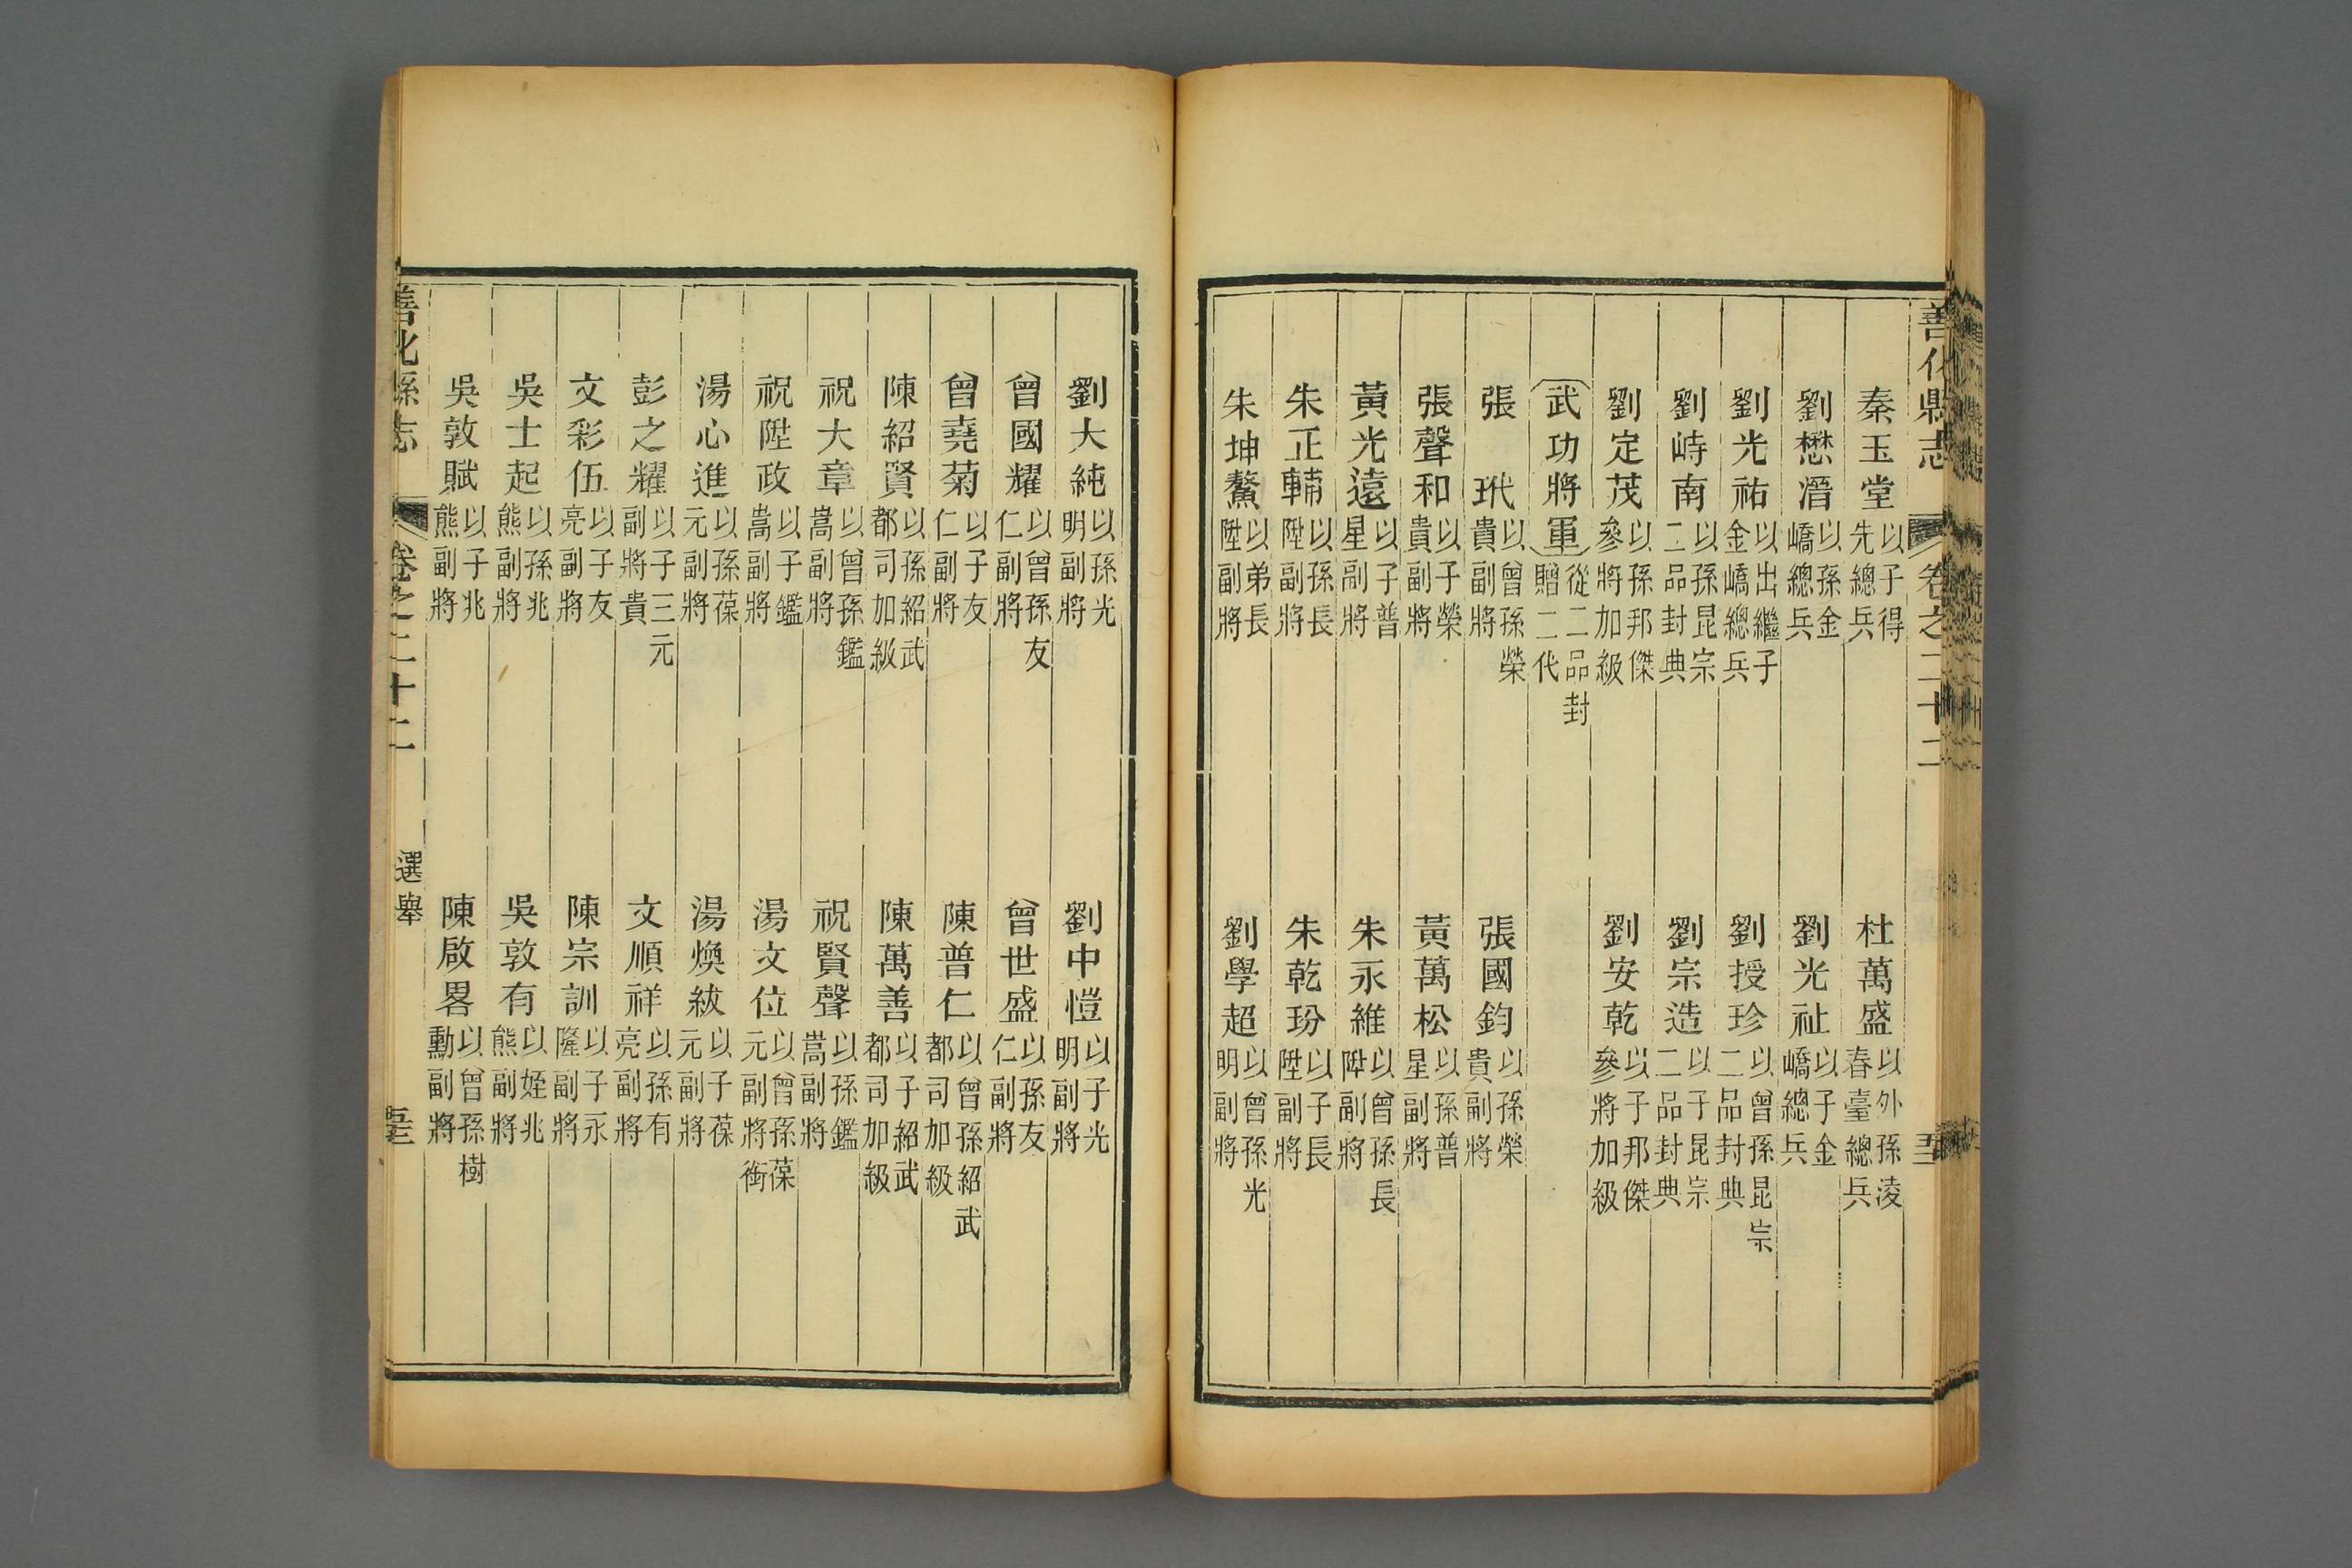 善化縣志 卷之二十二 五十二
秦玉堂 以子得先總兵 杜萬盛 以外孫淩春臺總兵
劉懋溍 以孫金嶠總兵 劉光祉 以子金嶠總兵
劉光祐 以出繼子金嶠總兵 劉授珍 以曾孫昆宗二品封典
劉峙南 以孫昆宗二品封典 劉宗造 以子昆宗二品封典
劉定茂 以孫邦傑參將加級 劉安乾 以子邦傑參將加級
武功將軍 從二品封贈二代
張玳 以曾孫榮貴副將 張國鈞 以孫榮貴副將
張聲和 以子榮貴副將 黃萬松 以孫普星副將
黃光遠 以子普星副將 朱永維 以曾孫長陞副將
朱正輔 以孫長陞副將 朱乾玢 以子長陞副將
朱坤鰲 以弟長陞副將 劉學超 以曾孫光明副將
劉大純 以孫光明副將 劉中愷 以子光明副將
曾國耀 以曾孫友仁副將 曾世盛 以孫友仁副將
曾堯菊 以子友仁副將 陳普仁 以曾孫紹武都司加級
陳紹賢 以孫紹武都司加級 陳萬善 以子紹武都司加級
祝大章 以曾孫鑑嵩副將 祝賢聲 以孫鑑嵩副將
祝陞政 以子鑑嵩副將 湯文位 以曾孫葆元副將銜
湯心進 以孫葆元副將 湯煥紱 以子葆元副將
彭之耀 以子三元副將貴 文順祥 以孫有亮副將
文彩伍 以子友亮副將 陳宗訓 以子永隆副將
吳士起 以孫兆熊副將 吳敦有 以姪兆熊副將
吳敦賦 以子兆熊副將 陳啟畧 以曾孫樹勳副將
善化縣志 卷之二十二 選舉